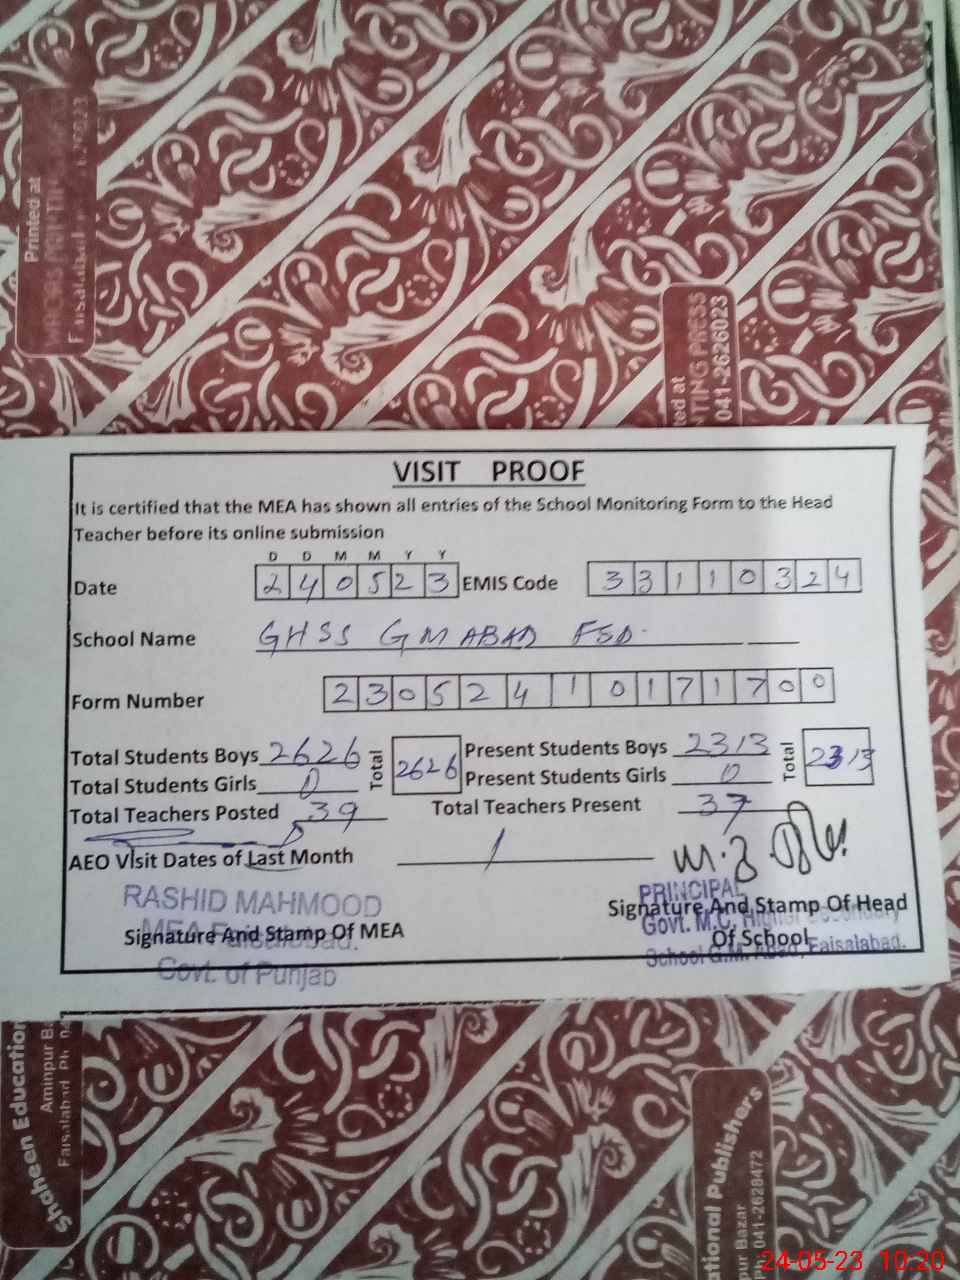 Printed at
Faisalabad
ted at
TING PRESS
041-2626023
VISIT PROOF
It is certified that the MEA has shown all entries of the School Monitoring Form to the Head
Teacher before its online submission
D D M M Y Y
Date 2 4 0 5 2 3 EMIS Code 3 3 1 1 0 3 2 4
School Name GHSS GM ABAD FSD.
Form Number 2 3 0 5 2 4 1 0 1 7 1 7 0 0
Total Students Boys 2626 Total 2626 Present Students Boys 2313 Total 2313
Total Students Girls 0 Present Students Girls 0
Total Teachers Posted 39 Total Teachers Present 37
AEO Visit Dates of Last Month
RASHID MAHMOOD
MEA Faisalabad.
Signature And Stamp Of MEA
Govt. of Punjab
PRINCIPAL
Signature And Stamp Of Head
Govt. M.C. Higher Secondary
Of School
School G.M. Abad, Faisalabad.
Shaheen Education
Aminpur Ba
Faisalabad Ph 04
tional Publishers
pur Bazar
041-2628472
24-05-23 10:20